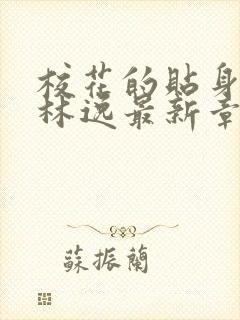 校花的貼身
林逸最新章
蘇振蘭